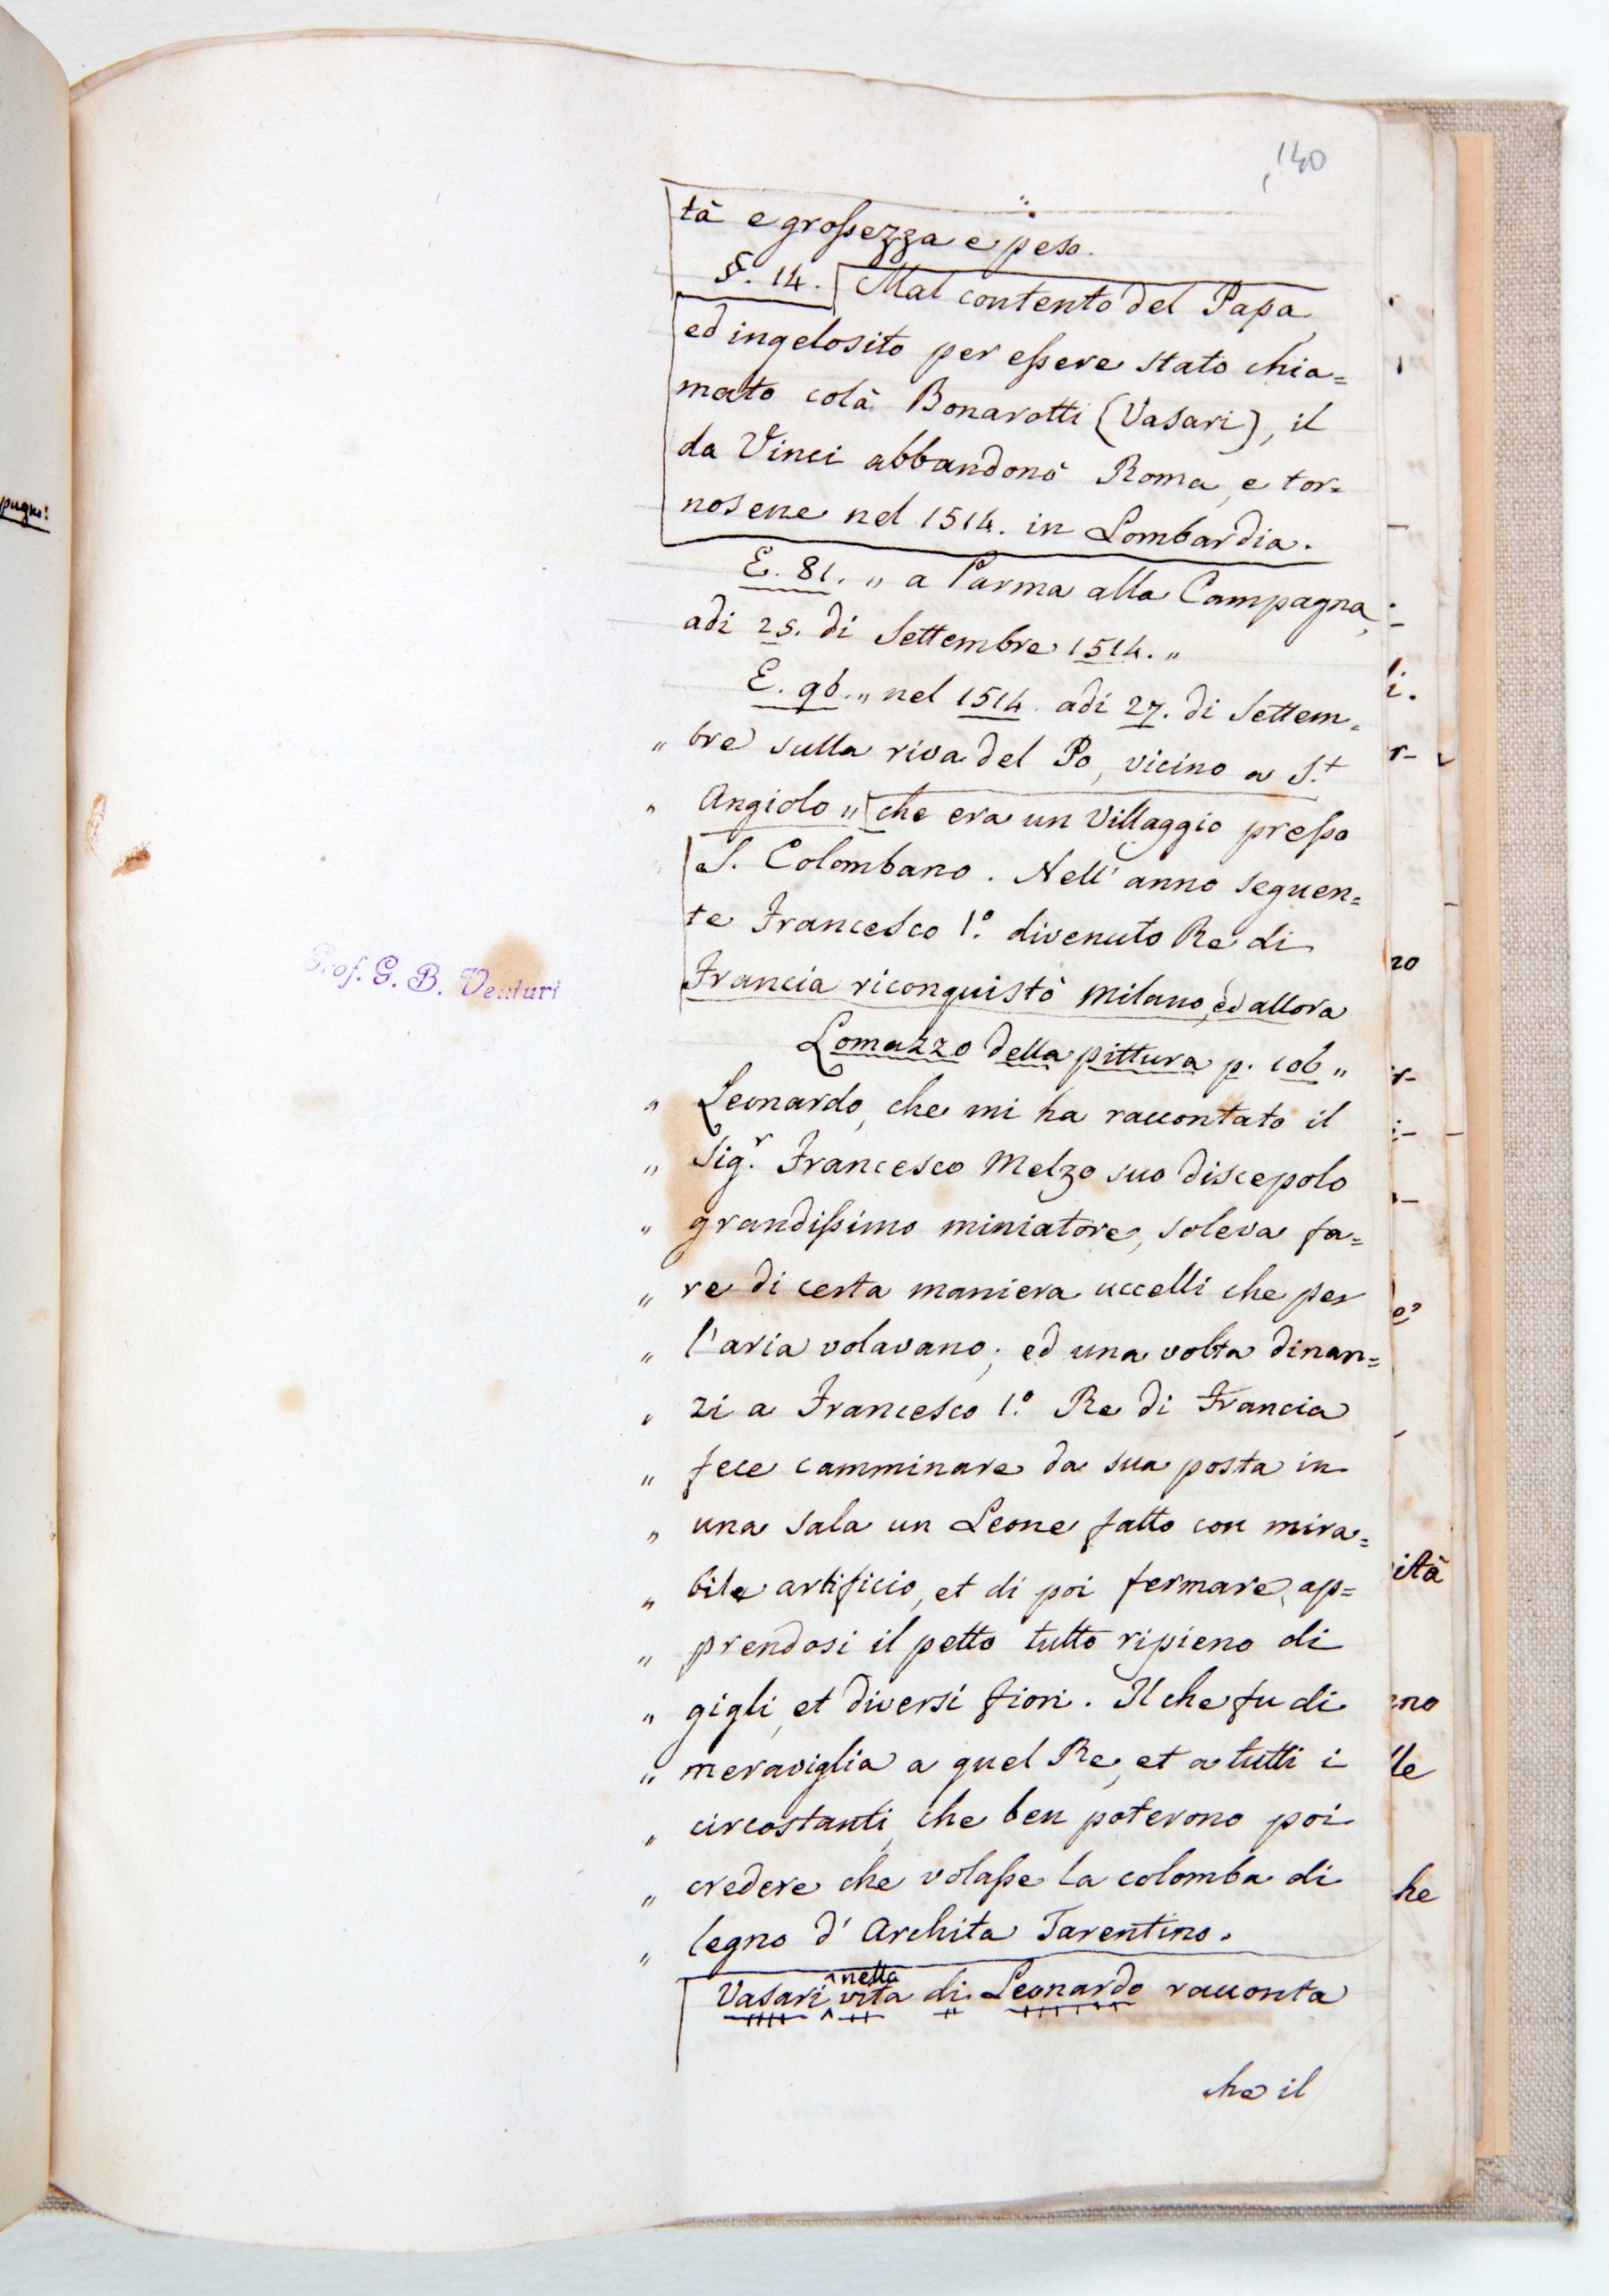 140
tà e grossezza e peso.
§. 14. Mal contento del Papa,
ed ingelosito per essere stato chia=
mato colà Bonarotti (Vasari), il
da Vinci abbandonò Roma, e tor=
nosene nel 1514. in Lombardia.
E. 81. „ a Parma alla Campagna,
adi 25. di Settembre 1514. „
E. 96. „ nel 1514 adi 27. di Settem=
„ bre sulla riva del Po, vicino a S.t
„ Angiolo „ che era un Villaggio presso
S. Colombano. Nell' anno seguen=
te Francesco 1.º divenuto Re di
Francia riconquistò Milano, ed allora
Lomazzo della pittura p. 106 „
„ Leonardo, che mi ha raccontato il
„ Sig.r Francesco Melzo suo discepolo
„ grandissimo miniatore, soleva fa=
„ re di certa maniera uccelli che per
„ l'aria volavano; ed una volta dinan=
„ zi a Francesco 1.º Re di Francia
„ fece camminare da sua posta in
„ una sala un Leone fatto con mira=
„ bile artificio, et di poi fermare, ap=
„ prendosi il petto tutto ripieno di
„ gigli, et diversi fiori. Il che fu di
„ meraviglia a quel Re, et a tutti i
„ circostanti, che ben poterono poi
„ credere che volasse la colomba di
„ legno d' Archita Tarentino.
Vasari nella vita di Leonardo racconta
che il
Prof. G. B. Venturi
pugno!